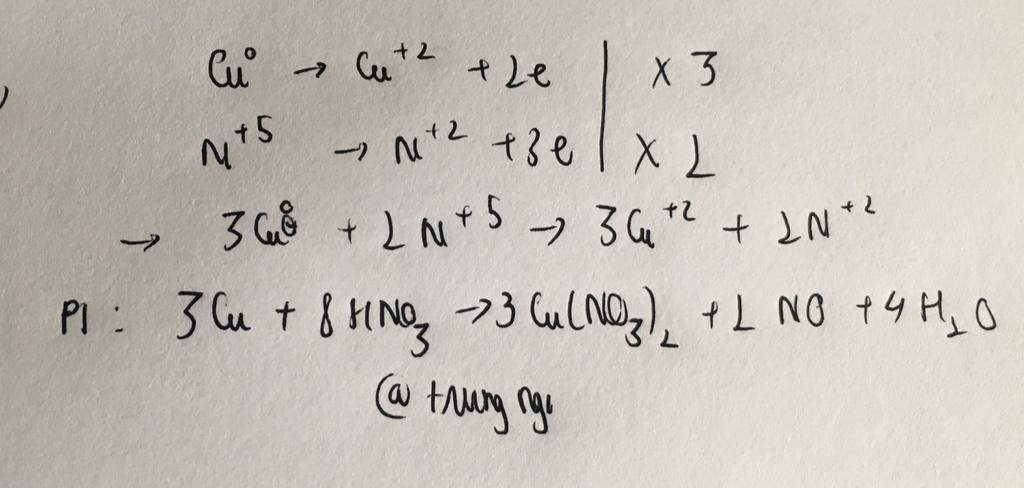 Cu⁰ → Cu⁺² + 2e | × 3
N⁺⁵ → N⁺² + 3e | × 2
→ 3Cu⁰ + 2N⁺⁵ → 3Cu⁺² + 2N⁺²
Pt : 3Cu + 8HNO₃ → 3Cu(NO₃)₂ + 2NO + 4H₂O
@ trung ngu